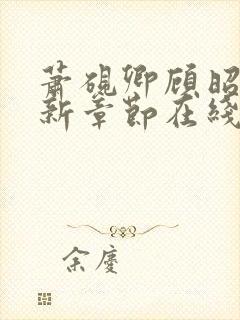 萧砚卿顾昭
新章节在线
余庆